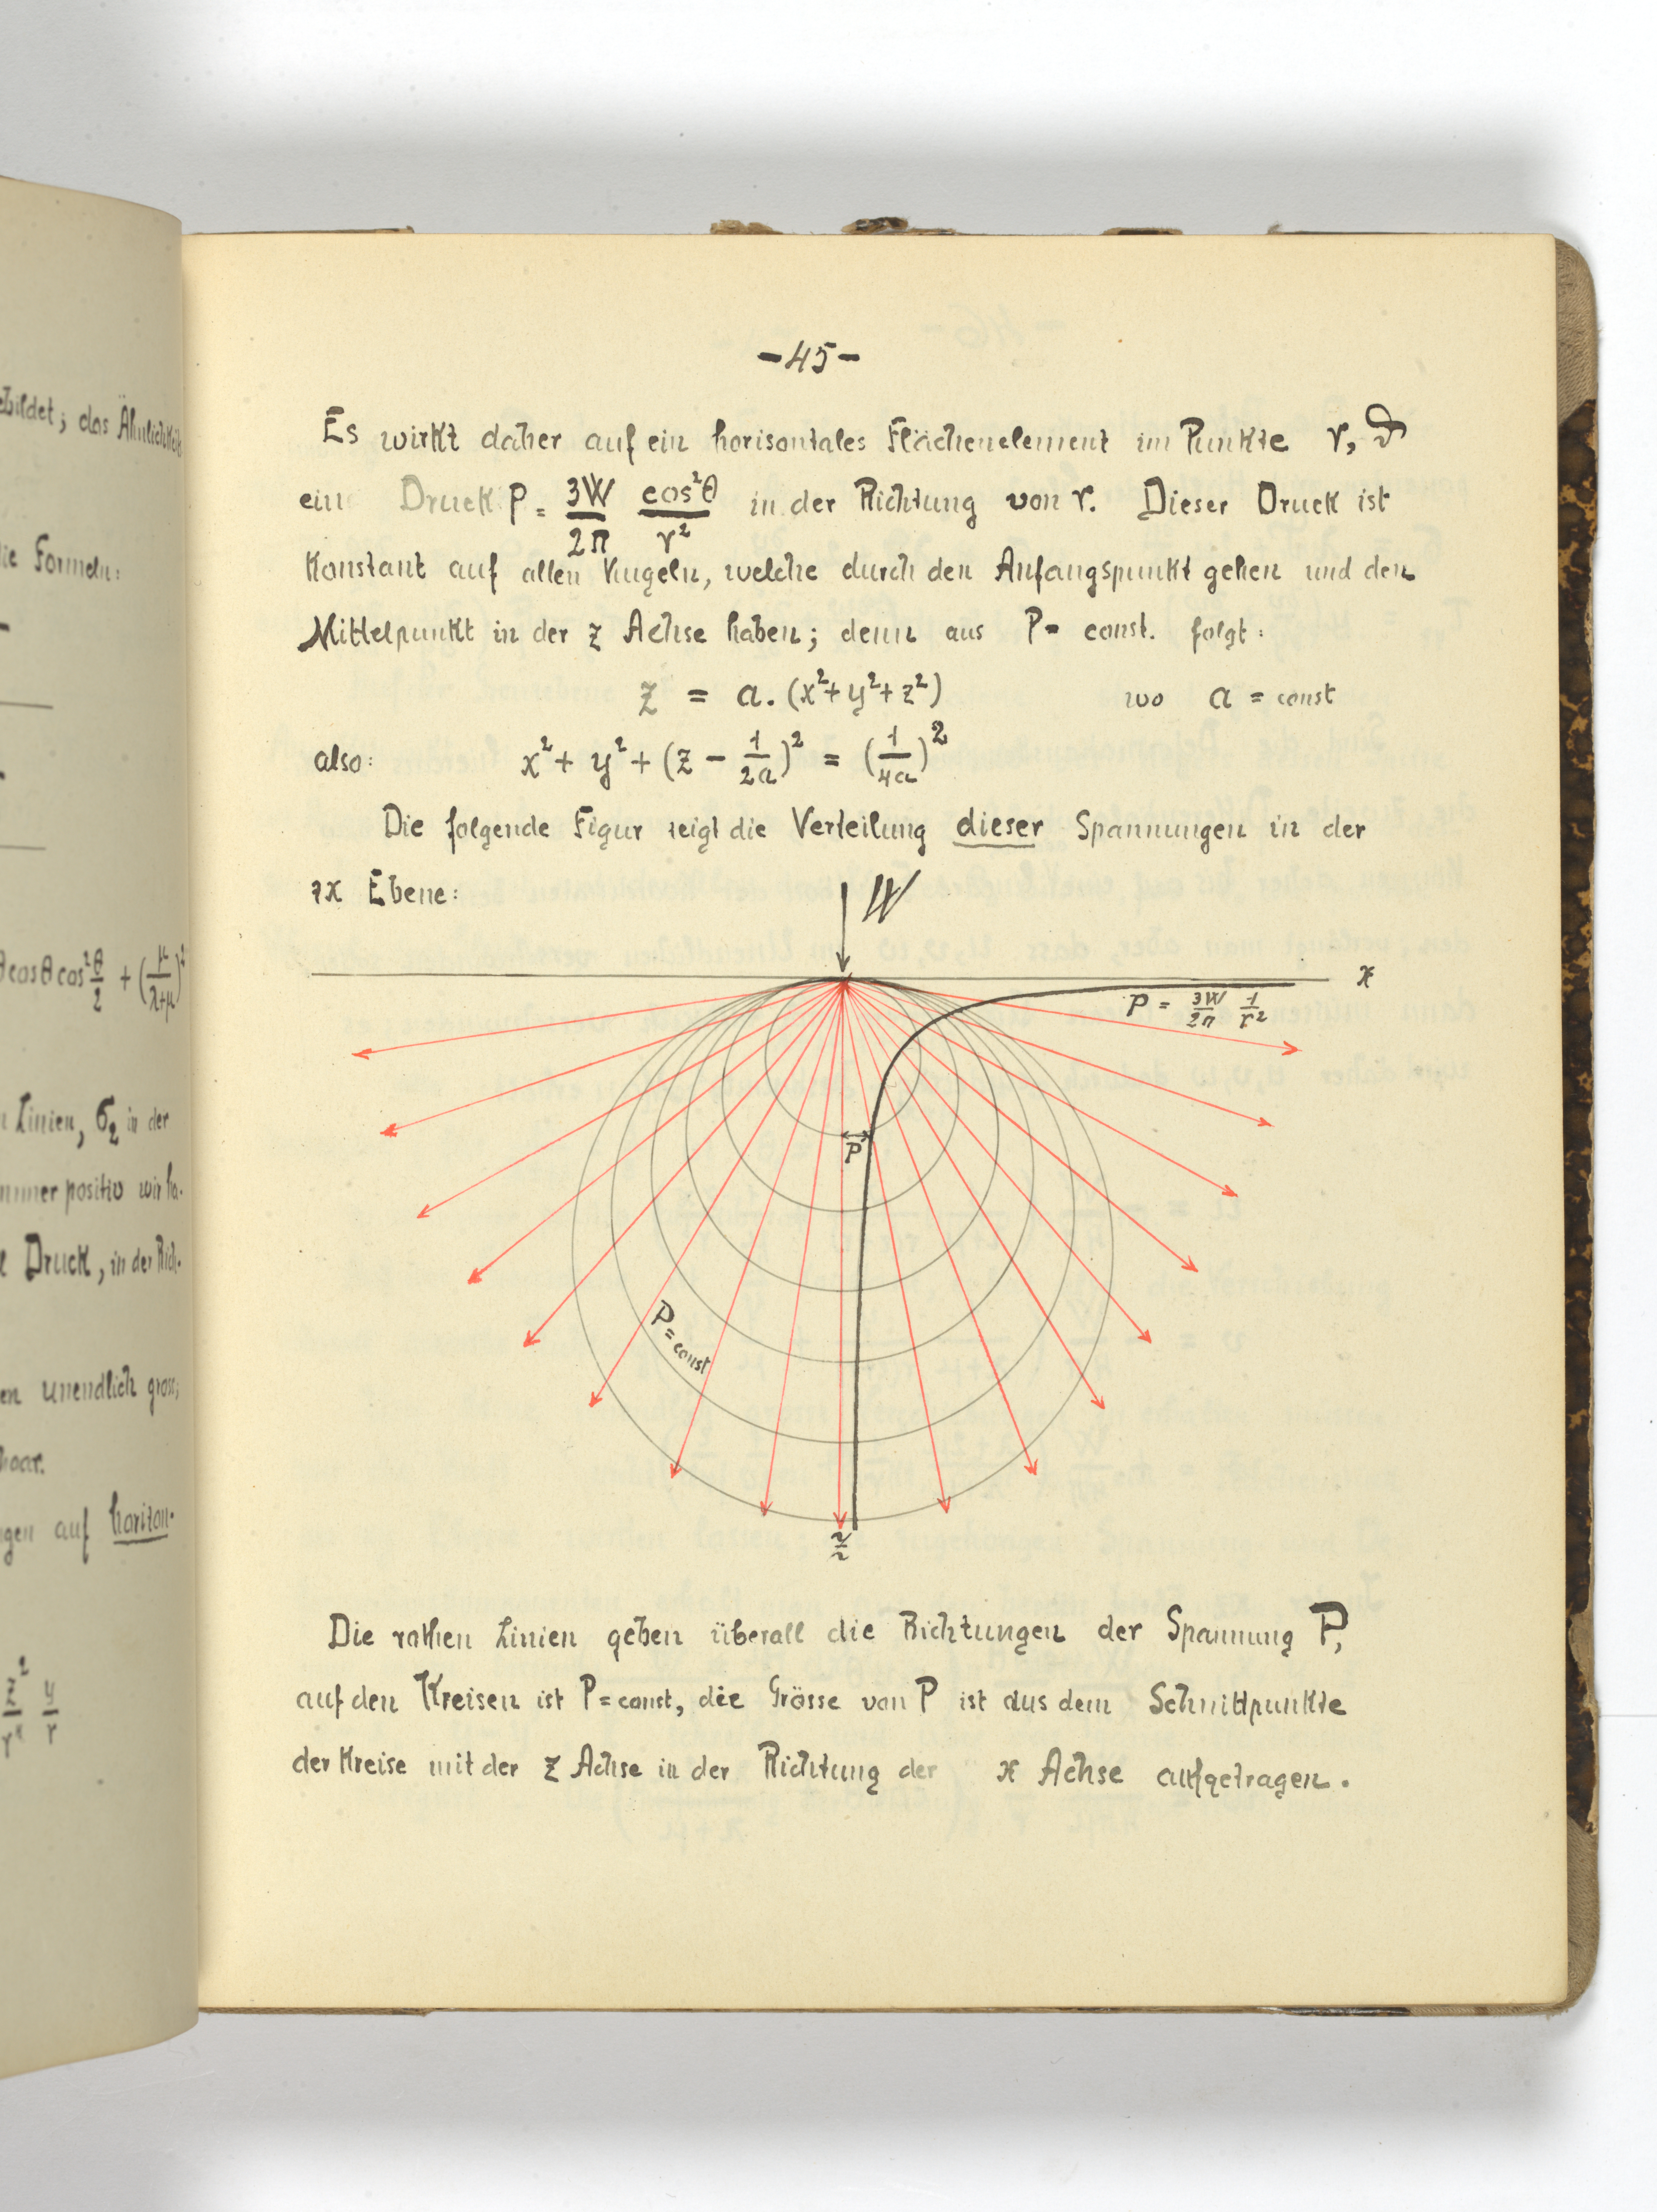 ebildet; das Ähnlichkeits
ie Formeln:
θ cosθ cos²θ/2 + (μ/λ+μ)²
n Linien, σ₂ in der
immer positiv wir ha-
Druck, in der Rich-
en unendlich gross,
bar.
gen auf horizon-
z²/r² y/r
-45-
Es wirkt daher auf ein horisontales Flächenelement im Punkte r, ϑ
ein Druck P = 3W/2π cos²θ/r² in der Richtung von r. Dieser Druck ist
Konstant auf allen Kugeln, welche durch den Anfangspunkt gehen und den
Mittelpunkt in der z Achse haben; denn aus P = const. folgt:
z = a.(x²+y²+z²) wo a = const
also: x²+ y²+(z - 1/2a)² = (1/4a)²
Die folgende Figur zeigt die Verteilung dieser Spannungen in der
zx Ebene:
W
x
P = 3W/2π 1/r²
P
P = const
z
Die rothen Linien geben überall die Richtungen der Spannung P,
auf den Kreisen ist P = const, die Grösse von P ist aus dem Schnittpunkte
der Kreise mit der z Achse in der Richtung der x Achse aufgetragen.